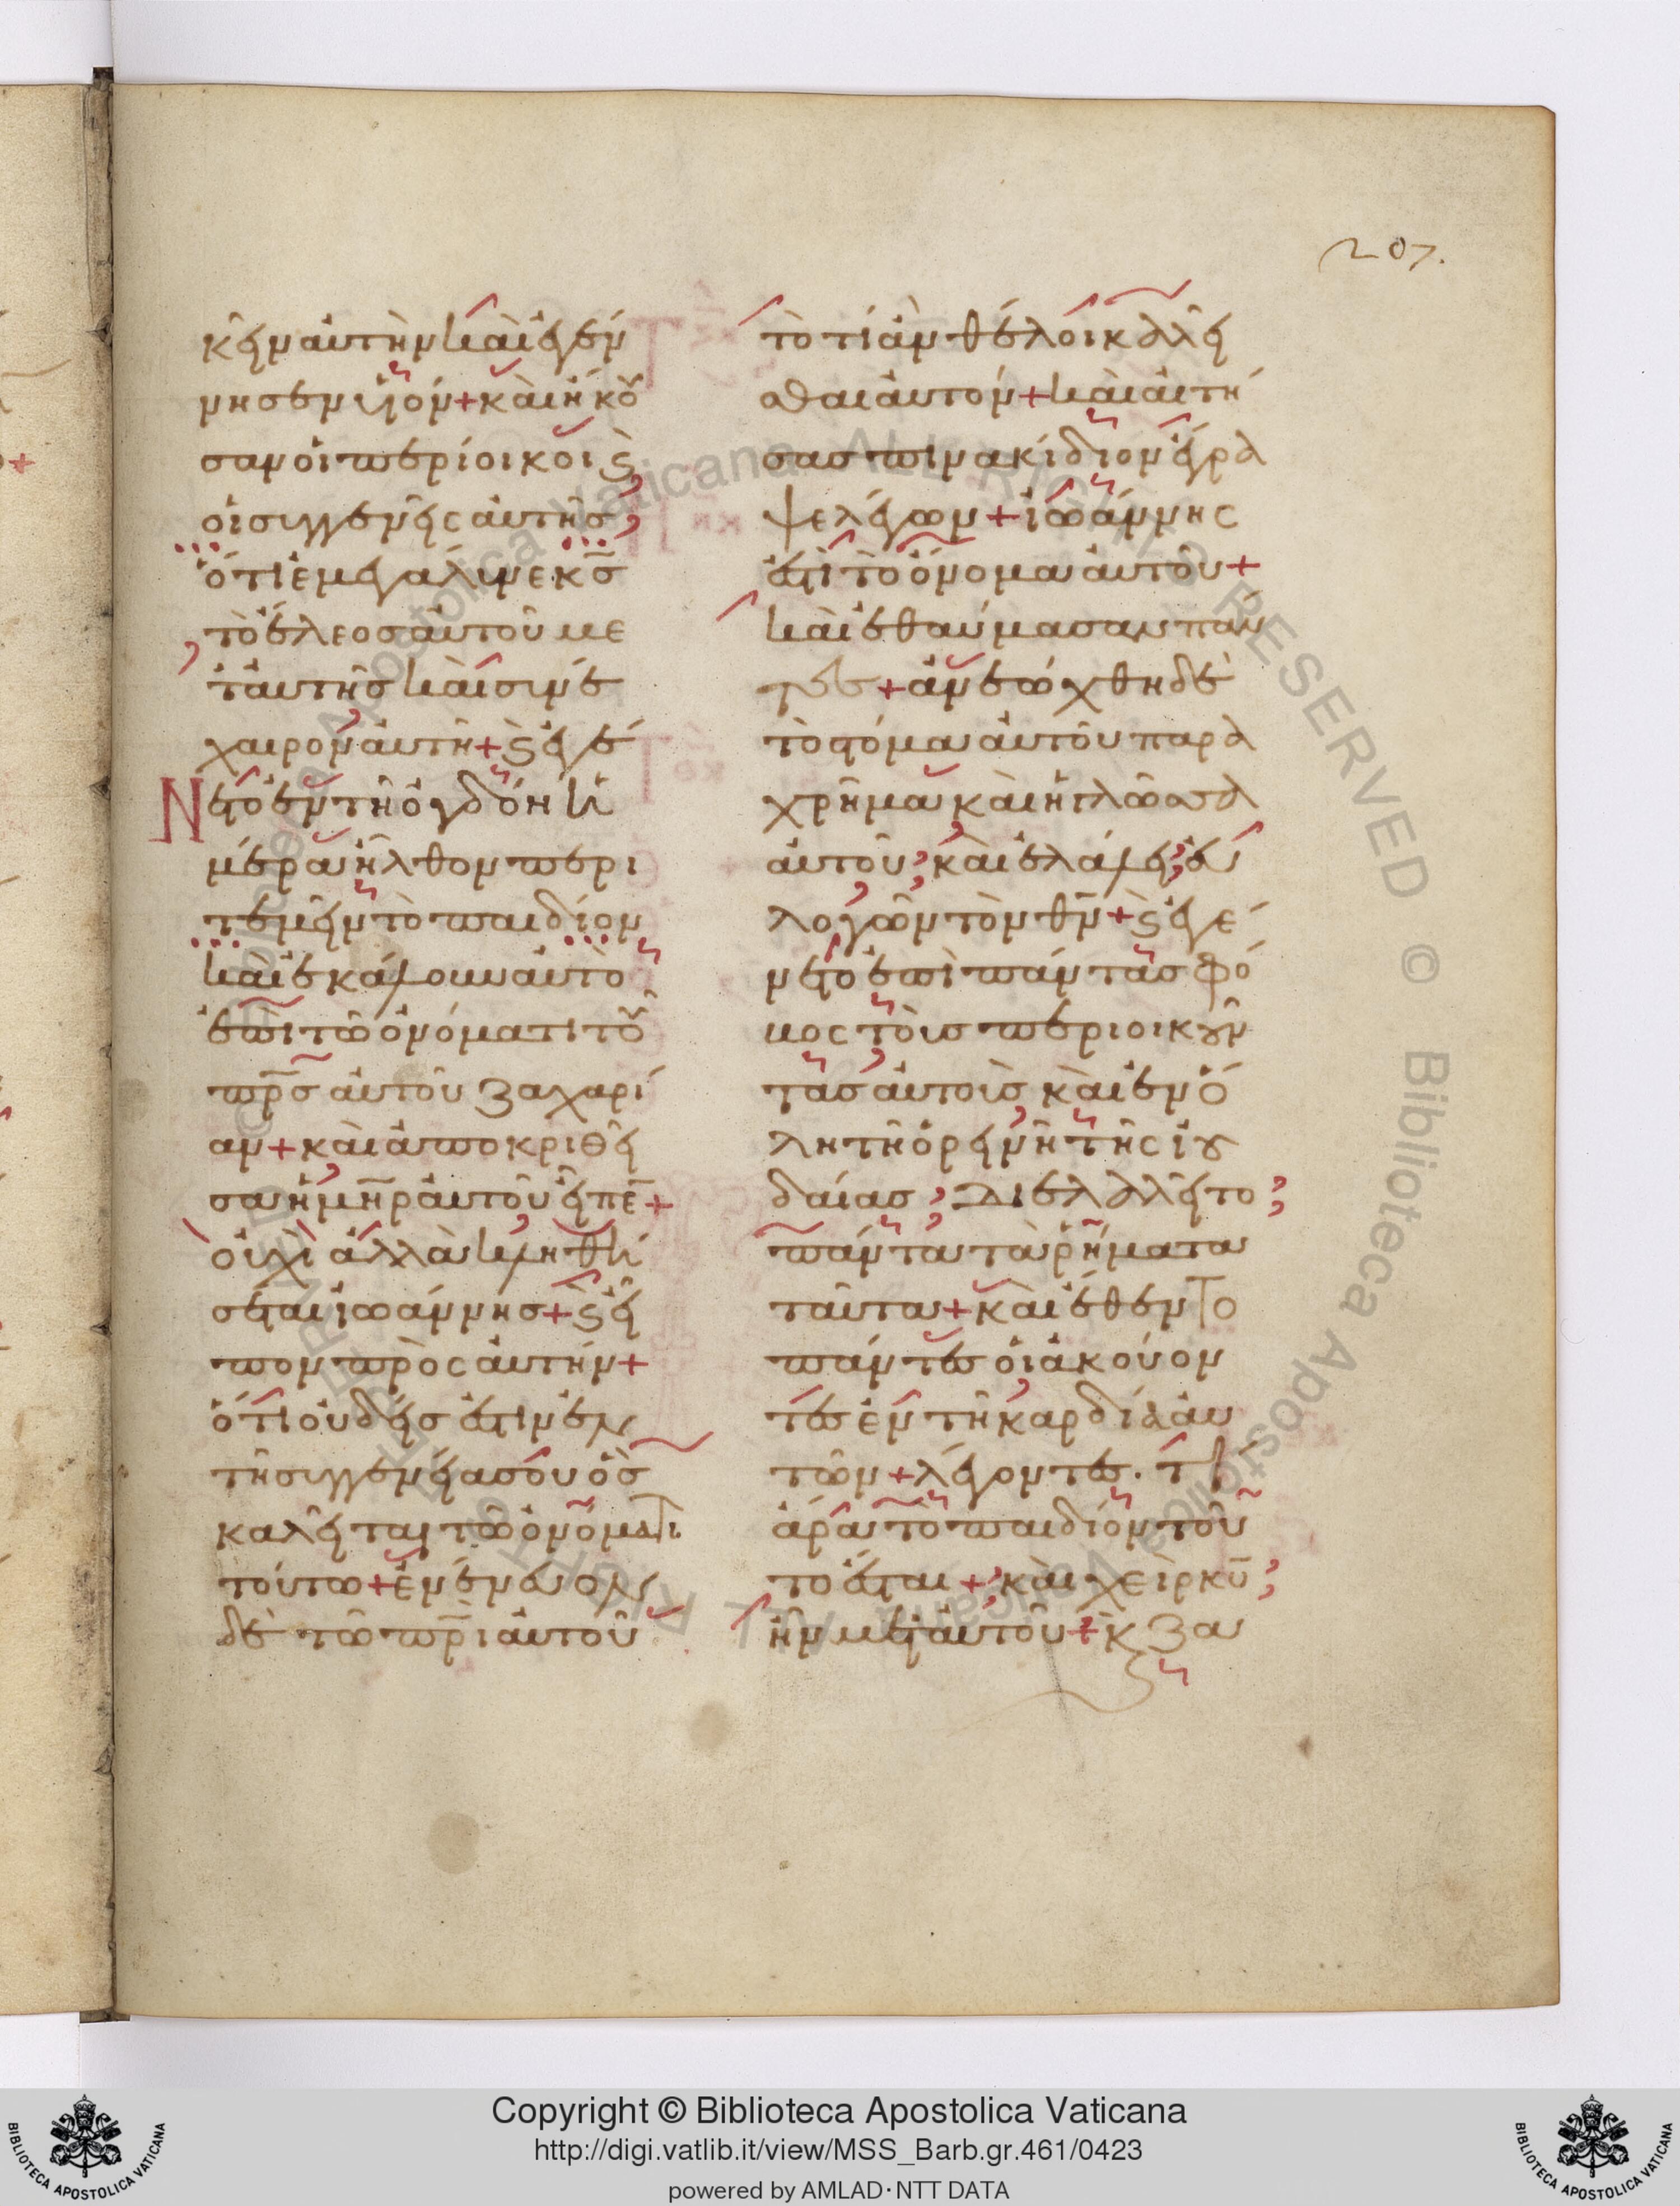 207.
κεῖν αὐτὴν καὶ ἐγέν
νησεν υἱόν + καὶ ἤκου
σαν οἱ περίοικοι ϛ
οἱ συγγενεῖς αὐτῆς
ὅτι ἐμεγάλυνε κ̅ς̅
τὸ ἔλεος αὐτοῦ με
τ' αὐτῆς καὶ συνέ
χαιρον αὐτῆ + ϛ ἐγέ
Νετο ἐν τῆ ὀγδόη ἡ
μέρα ἦλθον περι
τεμεῖν τὸ παιδίον
καὶ ἐκάλουν αὐτὸ
ἐπὶ τῶ ὀνόματι τοῦ
πρ̅ς αὐτοῦ ζαχαρί
αν + καὶ ἀποκριθεῖ
σα ἡ μη̅ρ αὐτοῦ εἶπε̅ +
οὐχὶ ἀλλὰ κληθή
σεται ἰωάννης + ϛ εἶ
πον πρὸς αὐτήν +
ὅτι οὐδείς ἐστιν ἐν
τῆ συγγενεία σου ὃς
καλεῖται τῶ ὀνόματι
τούτω + ἐνένευον
δὲ τῶ πρ̅ι αὐτοῦ
τὸ τί ἂν θέλοι καλεῖ
σθαι αὐτόν + καὶ αἰτή
σας πινακίδιον ἔγρα
ψε λέγων + ἰωάννης
ἐστὶ τὸ ὄνομα αὐτοῦ +
καὶ ἐθαύμασαν πάν
τες + ἀνεώχθη δὲ
τὸ στόμα αὐτοῦ παρα
χρῆμα καὶ ἡ γλῶσσα
αὐτοῦ καὶ ἐλάλει εὐ
λογῶν τὸν θν̅ + ϛ ἐγέ
νετο ἐπὶ πάντας φό
βος τοὺς περιοικοῦν
τας αὐτοὺς καὶ ἐν ὅ
λη τῆ ὀρεινῆ τῆς ἰου
δαίας διελαλεῖτο
πάντα τὰ ῥήματα
ταῦτα + καὶ ἔθεντο
πάντες οἱ ἀκούον
τες ἐν τῆ καρδία αὐ
τῶν + λέγοντες. τί
ἄρα τὸ παιδίον τοῦ
το ἔσται + καὶ χεὶρ κυ̅
ἦν μετ' αὐτοῦ + κ ζα
Copyright © Biblioteca Apostolica Vaticana
http://digi.vatlib.it/view/MSS_Barb.gr.461/0423
powered by AMLAD·NTT DATA
BIBLIOTECA APOSTOLICA VATICANA
BIBLIOTECA APOSTOLICA VATICANA